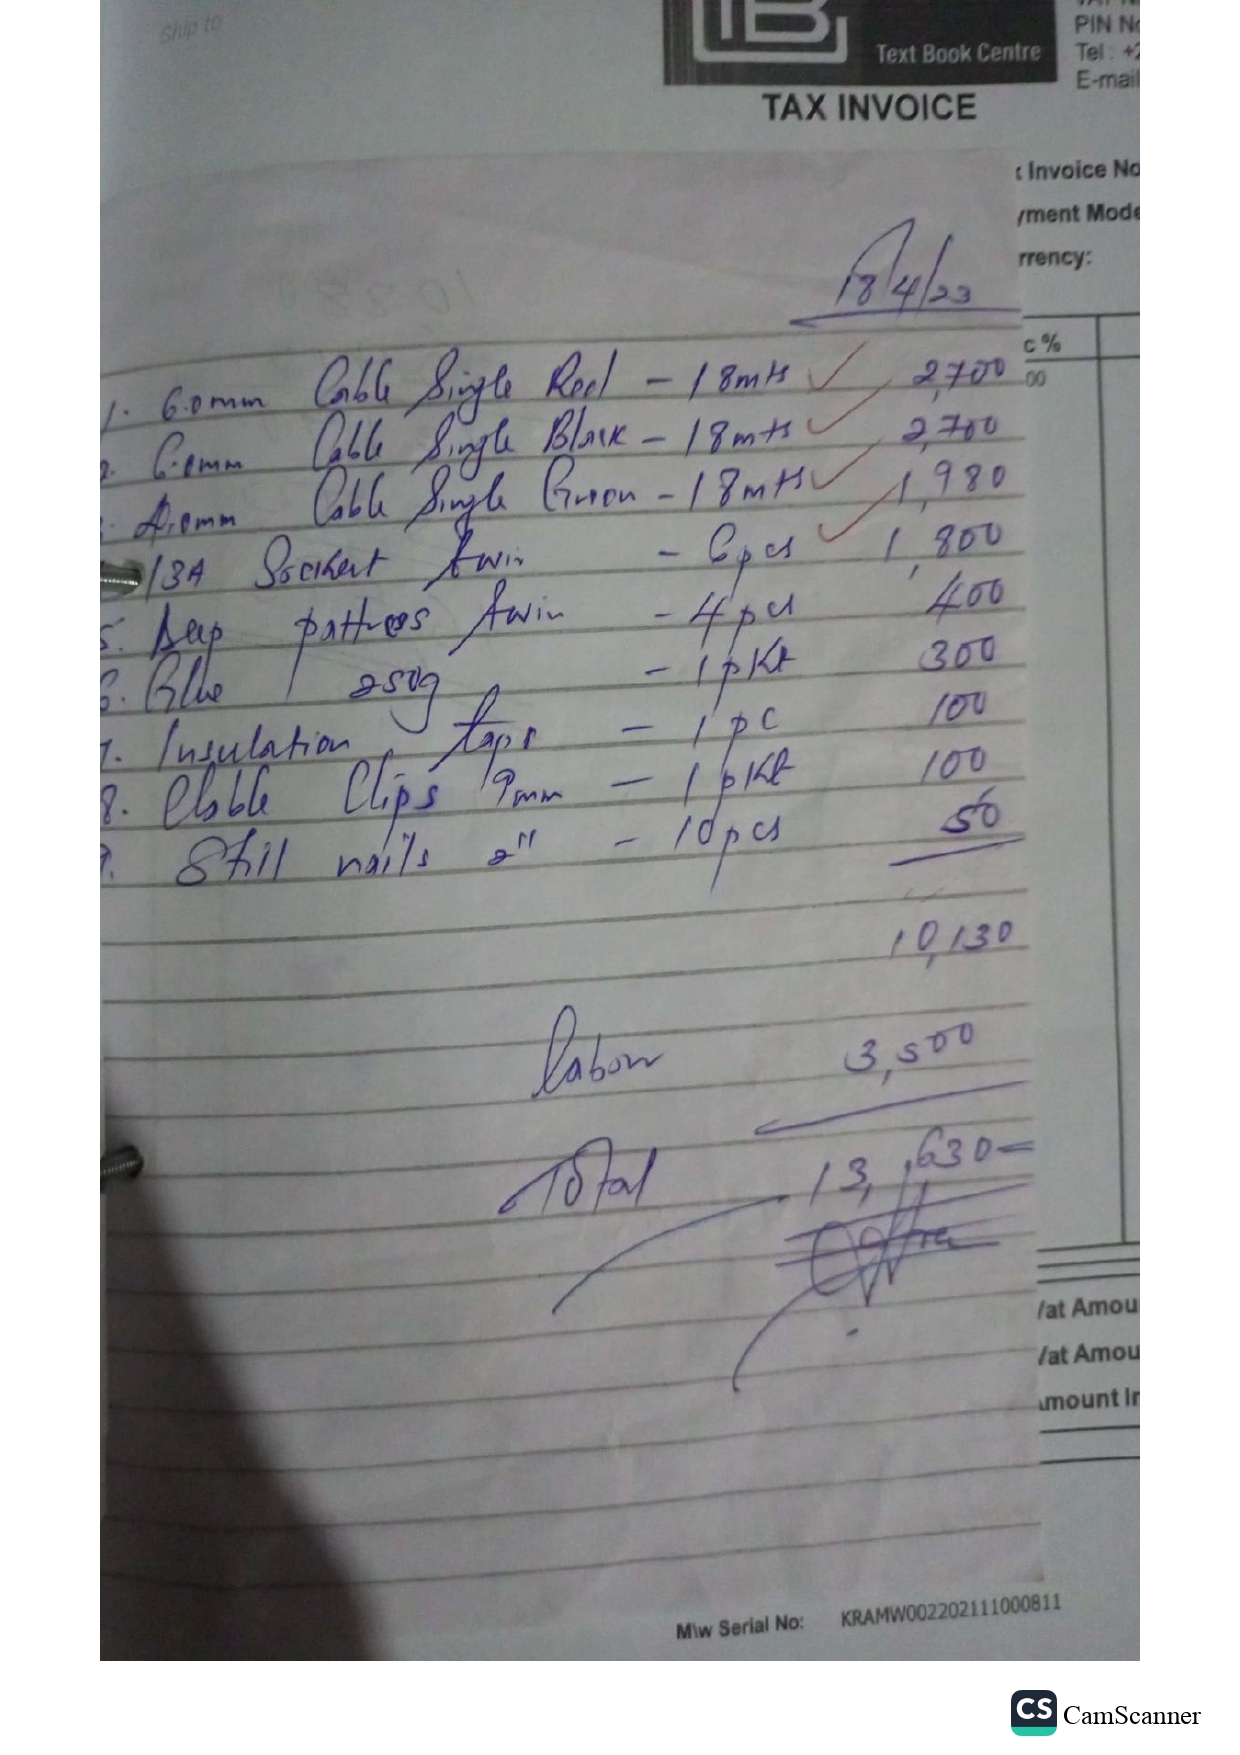 Ship to
Text Book Centre
VAT N
PIN No
Tel : +2
E-mail
TAX INVOICE
Invoice No
yment Mode
rrency:
18/4/23
c %
00
1. 6.0mm Cable Single Red - 18mts 2,700
2. 6.0mm Cable Single Black - 18mts 2,700
4.0mm Cable Single Green - 18mts 1,980
13A Socket twin - 6pcs 1,800
5. Deep pattress twin - 4pcs 400
6. Glue 250g - 1pkt 300
7. Insulation tape - 1pc 100
8. Cable Clips 9mm - 1pkt 100
9. Still nails 2" - 10pcs 50
10,130
labour 3,500
Total 13,630
Vat Amou
Vat Amou
mount In
M\w Serial No: KRAMW002202111000811
CS CamScanner